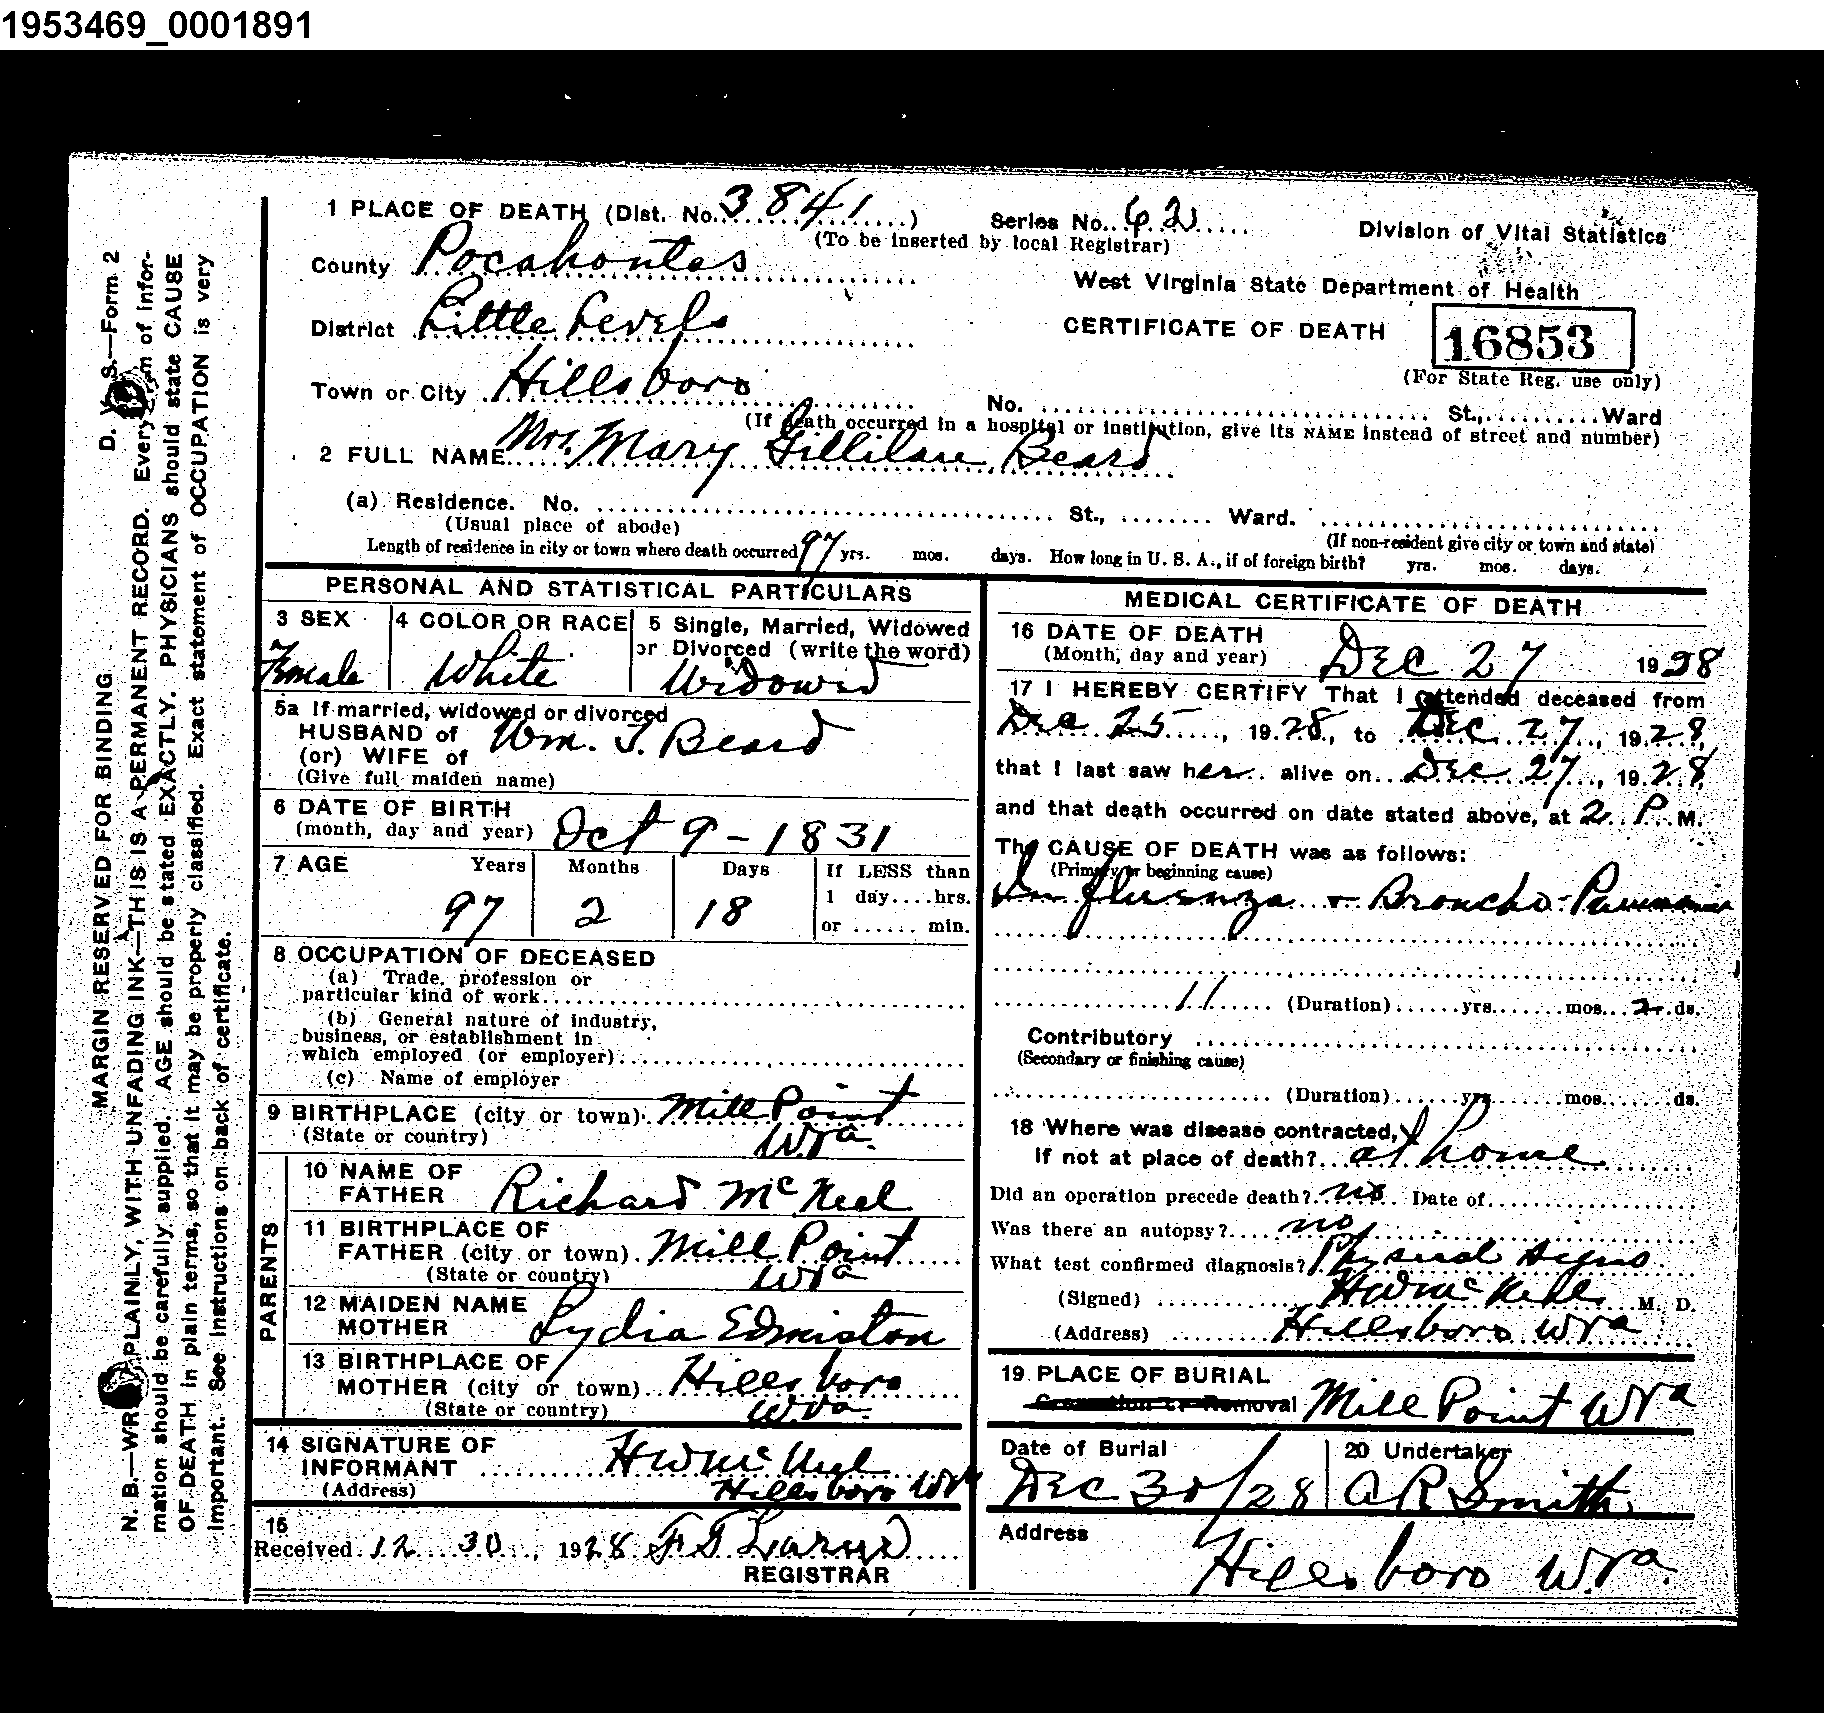 1953469_0001891
1 PLACE OF DEATH (Dist. No. 3841) Series No. 62
(To be inserted by local Registrar)
Division of Vital Statistics
County Pocahontas
West Virginia State Department of Health
District Little Levels
CERTIFICATE OF DEATH 16853
(For State Reg. use only)
Town or City Hillsboro
No. St., Ward
(If death occurred in a hospital or institution, give its NAME instead of street and number)
2 FULL NAME Mrs. Mary Gillilan Beard
(a) Residence. No. St., Ward.
(Usual place of abode)
(If non-resident give city or town and state)
Length of residence in city or town where death occurred 97 yrs. mos. days. How long in U. S. A., if of foreign birth? yrs. mos. days.
PERSONAL AND STATISTICAL PARTICULARS
3 SEX 4 COLOR OR RACE 5 Single, Married, Widowed
or Divorced (write the word)
Female White Widowed
5a If married, widowed or divorced
HUSBAND of
(or) WIFE of Wm. T. Beard
(Give full maiden name)
6 DATE OF BIRTH
(month, day and year) Oct 9 - 1831
7 AGE Years Months Days If LESS than
1 day....hrs.
97 2 18
or ...... min.
8 OCCUPATION OF DECEASED
(a) Trade, profession or
particular kind of work
(b) General nature of industry,
business, or establishment in
which employed (or employer)
(c) Name of employer
9 BIRTHPLACE (city or town) Mill Point
(State or country) WVa.
PARENTS
10 NAME OF
FATHER Richard McNeel
11 BIRTHPLACE OF
FATHER (city or town) Mill Point
(State or country) WVa
12 MAIDEN NAME
MOTHER Lydia Edmiston
13 BIRTHPLACE OF
MOTHER (city or town) Hillsboro
(State or country) WVa.
14 SIGNATURE OF
INFORMANT HW McNeel
(Address) Hillsboro WVa
15
Received 12 30, 1928 F T Larue
REGISTRAR
MEDICAL CERTIFICATE OF DEATH
16 DATE OF DEATH
(Month, day and year) Dec 27 1928
17 I HEREBY CERTIFY That I attended deceased from
Dec 25, 1928, to Dec 27, 1928,
that I last saw her alive on Dec 27, 1928,
and that death occurred on date stated above, at 2 P. M.
The CAUSE OF DEATH was as follows:
(Primary or beginning cause)
Influenza + Broncho-Pneumonia
11 (Duration) yrs. mos. 2 ds.
Contributory
(Secondary or finishing cause)
(Duration) yrs. mos. ds.
18 Where was disease contracted,
if not at place of death? at home
Did an operation precede death? no Date of
Was there an autopsy? no
What test confirmed diagnosis? Physical signs
(Signed) HW McNeel M. D.
(Address) Hillsboro WVa
19 PLACE OF BURIAL
Cremation or Removal Mill Point WVa
Date of Burial 20 Undertaker
Dec 30/28 A R Smith
Address
Hillsboro W.Va.
D. V. S.—Form 2
MARGIN RESERVED FOR BINDING
N. B.—WRITE PLAINLY, WITH UNFADING INK—THIS IS A PERMANENT RECORD. Every item of infor-
mation should be carefully supplied. AGE should be stated EXACTLY. PHYSICIANS should state CAUSE
OF DEATH in plain terms, so that it may be properly classified. Exact statement of OCCUPATION is very
important. See instructions on back of certificate.